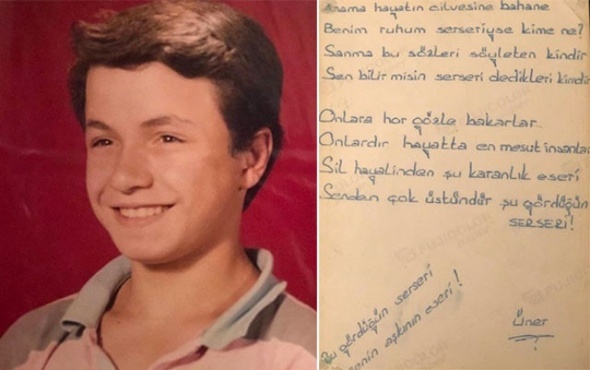 Arama hayatın cilvesine bahane
Benim ruhum serseriyse kime ne?
Sanma bu sözleri söyleten kindir
Sen bilir misin serseri dedikleri kimdir
Onlara hor gözle bakarlar
Onlardır hayatta en mesut insanlar
Sil hayalinden şu karanlık eseri
Senden çok üstündür şu gördüğün
SERSERİ!
Bu gördüğün serseri
senin aşkının eseri!
Üner
FUJICOLOR